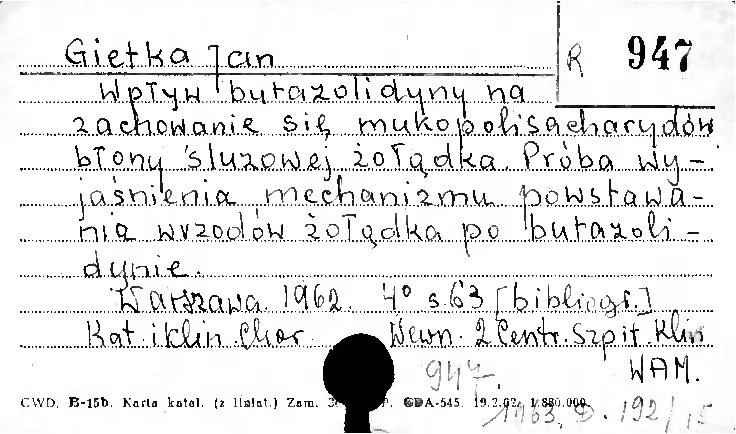 Gietka Jan
R 947
Wpływ butazolidyny na
zachowanie się mukopolisacharydów
błony śluzowej żołądka. Próba wy-
jaśnienia mechanizmu powstawa-
nia wrzodów żołądka po butazoli-
dynie.
Warszawa 1962. 4° s. 63 [bibliogr.]
Kat. i Klin. Chor. Wewn. 2 Centr. Szpit. Klin
WAM.
947.
CWD. B-15b. Karta katal. (z liniat.) Zam. GDA-545. 19.2.62. 1.880.000.
1963. D. 192/15